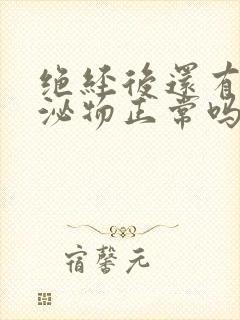 绝经後還有
泌物正常吗
宿馨元